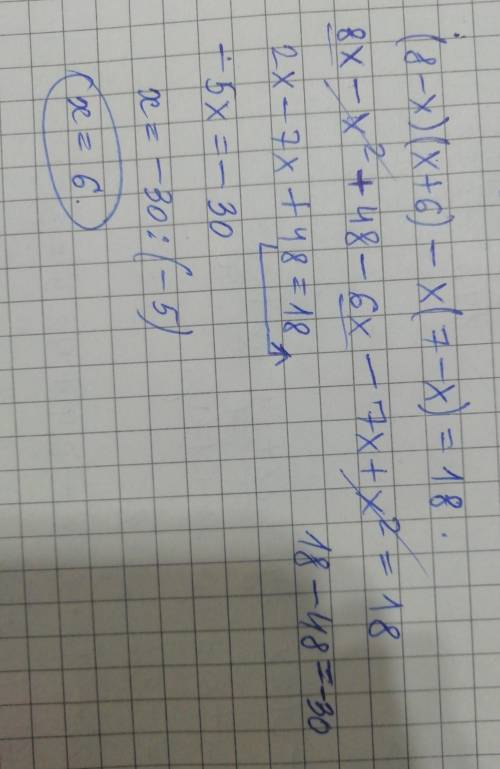 (8-x)(x+6)-x(7-x)=18.
8x-x²+48-6x-7x+x²=18
2x-7x+48=18
18-48=-30
-5x=-30
x=-30:(-5)
x=6.